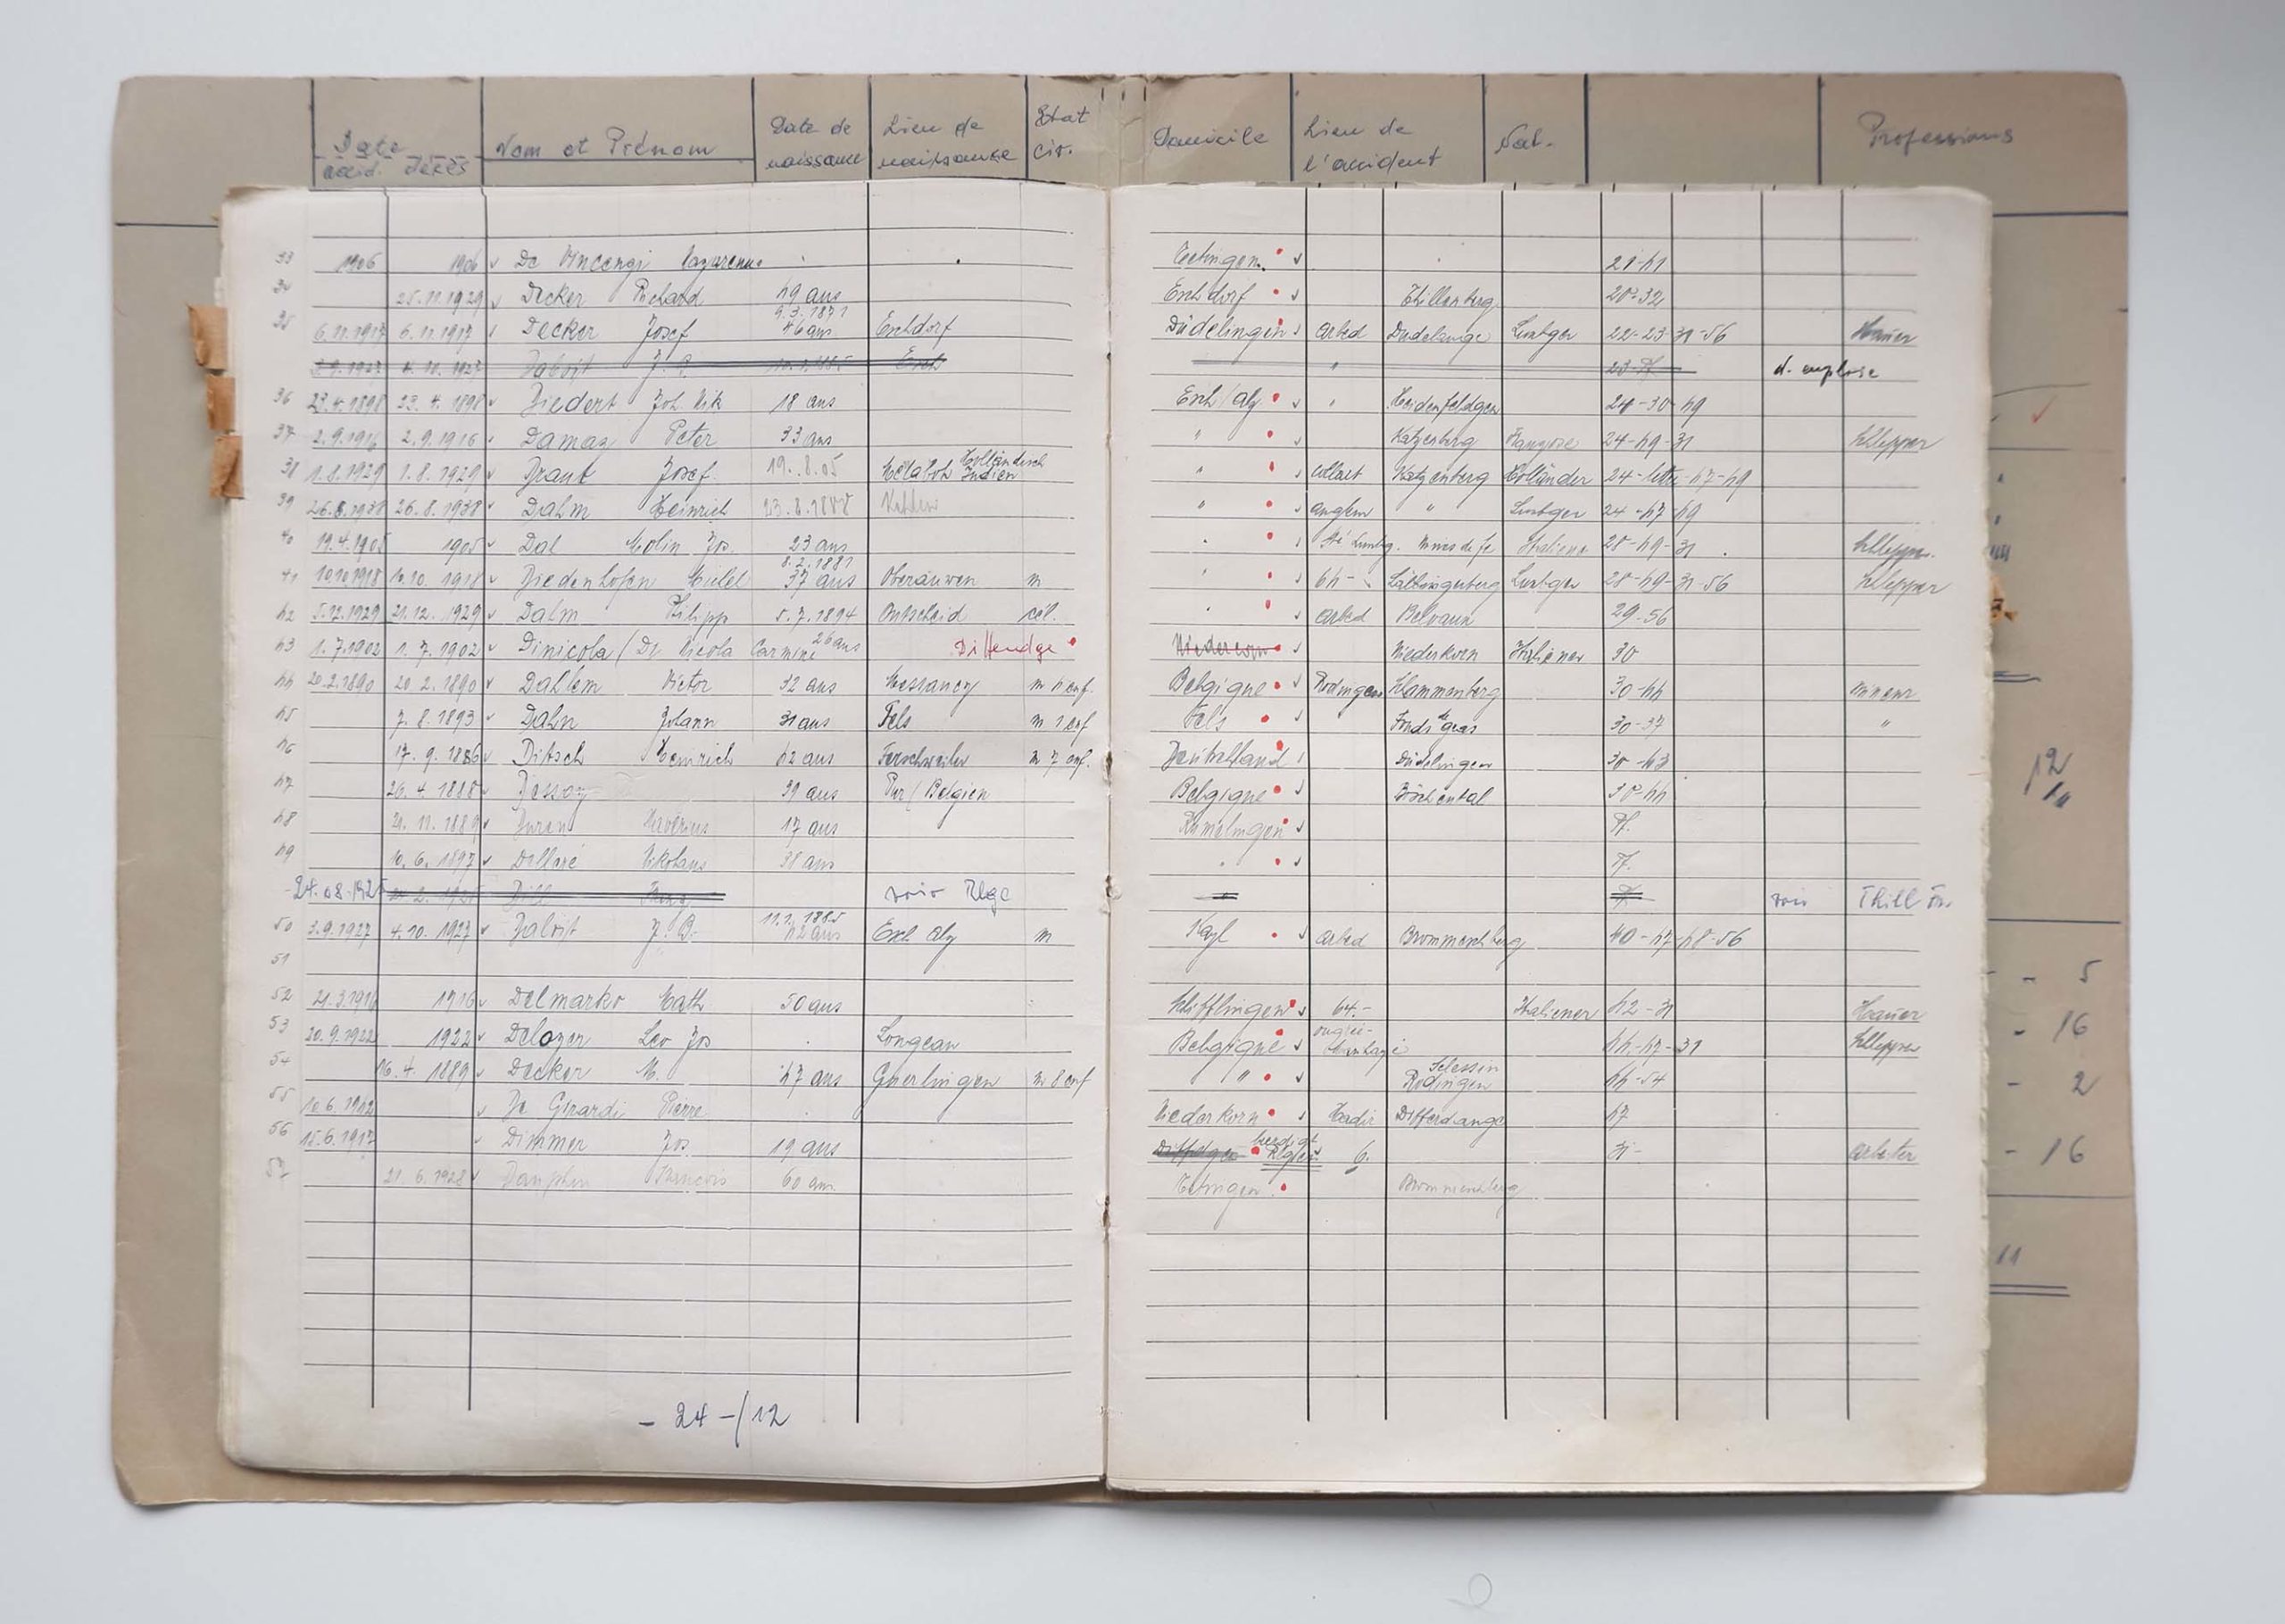 Date Nom et Prénom Date de naissance Lieu de naissance Etat civ. Domicile Lieu de l'accident Nat. Professions
accid. Décès
33 1906 1906 De Vincenzi Nazareno Tetingen 21-41
34 25.11.1929 Decker Richard 49 ans Eschdorf Thillenberg 20-32
35 6.11.1917 6.11.1917 Decker Josef 9.3.1871 46 ans Eschdorf Düdelingen Arbed Dudelange Luxbger 22-23-31-56 Hauer
3.9.1927 4.10.1927 Dalvit J. B. 11.1.1885 Esch " 23 d. explose
36 23.4.1898 23.4.1898 Diedert Joh Nik 18 ans Esch/Alz. " Heidenfeldgen 24-30-49
37 2.9.1916 2.9.1916 Damaz Peter 33 ans " Katzenberg Franzose 24-49-31 Schlepper
38 1.8.1929 1.8.1929 Josef 19.8.05 Holländisch Indien " Collart Katzenberg Holländer 24-47-49
39 26.8.1938 26.8.1938 Dahm Heinrich 23.8.1888 " " Luxbger 24-47-49
40 19.4.1905 1905 Dal Molin Jos. 23 ans " Mines de fe Italiener 28-49-31 Schlepper
41 10.10.1918 10.10.1918 Diedenhofen Michel 8.2.1881 37 ans m " 64- Luxbger 28-49-31-56 Schlepper
42 5.12.1929 21.12.1929 Dalm Philipp 5.7.1894 cél. " Arbed Belvaux 29-56
43 1.7.1902 1.7.1902 Dinicola / De Nicola Carmine 26 ans Diffendge Niedercorn Niederkorn Italiener 30
44 20.2.1890 20.2.1890 Dahlem Victor 32 ans Messancy m 4 enf. Belgique Rodingen Klammenberg 30-44 mineur
45 7.8.1893 Dahn Johann 31 ans Fels m 1 enf Fels " Fonds de gras 30-37 "
46 17.9.1886 Ditsch Heinrich 42 ans Ferschweiler m 7 enf. Deutschland Düdelingen 30-43
47 26.4.1888 Dessoy 39 ans Pur/Belgien Belgique 30-44
48 21.11.1889 Duren Xaverius 17 ans Rümelingen
49 10.6.1897 Nikolaus 38 ans "
24.08.1925 Dill voir Rlge voir Thill
50 3.9.1927 4.10.1927 Dalvit J. B. 11.1.1885 42 ans Esch Alz m Kayl Arbed Brommeschberg 40-47-48-56
51
52 21.3.1916 1916 Delmarko Math 50 ans Schifflingen 64.- Italiener 42-31 Hauer
53 20.9.1922 1922 Delozer Leo Jos Longeau Belgique ougrée- 44-47-31 Schlepper
54 16.4.1889 Decker M. 47 ans Guerlingen m 8 enf " Selessin Rodingen 44-54
55 10.6.1912 De Girardi Pierre Niederkorn Hadir Differdange 47
56 15.6.1917 Dimmer Jos. 19 ans Diffdge beerdigt Rlgen 6. 31- Arbeiter
57 21.6.1928 Dauphin Francois 60 ans Tetingen Brommeschberg
- 24 -/12
12
- 5
- 16
- 2
- 16
11